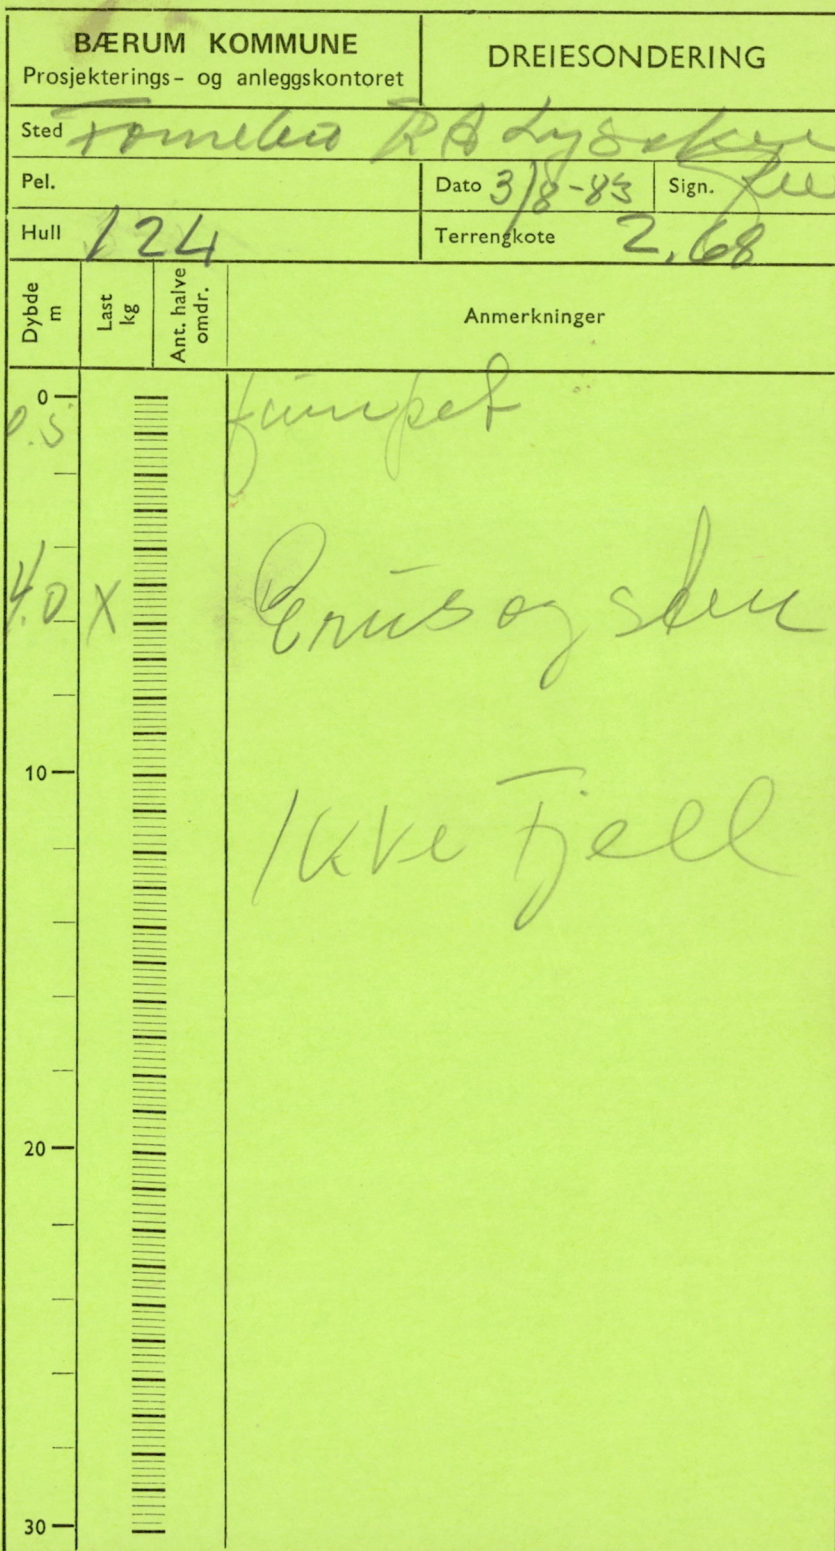 BÆRUM KOMMUNE
Prosjekterings- og anleggskontoret
DREIESONDERING
Sted Fornebu RA Lysaker
Pel.
Dato 3/8-83 Sign.
Hull 124
Terrengkote 2,68
Dybde m
Last kg
Ant. halve omdr.
Anmerkninger
0
0.5
4.0 X Grus og sten
10
Ikke Fjell
20
30